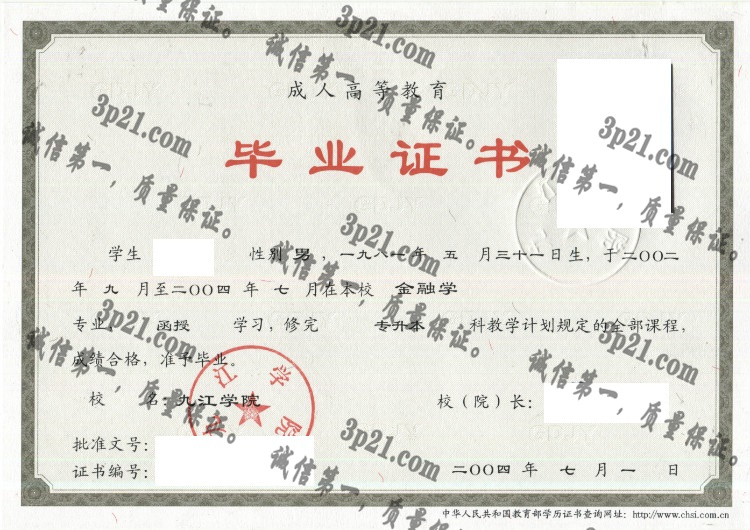 成人高等教育
毕业证书
学生 性别 男,一九八一年 五 月三十一日生,于二〇〇二
年 九 月至二〇〇四年 七 月在本校 金融学
专业, 函授 学习,修完 专升本 科教学计划规定的全部课程,
成绩合格,准予毕业。
校 名:九江学院 校(院)长:
批准文号:
证书编号: 二〇〇四年 七 月 一 日
中华人民共和国教育部学历证书查询网址: http://www.chsi.com.cn
九江学院
3p21.com
诚信第一,质量保证。
3p21.com
诚信第一,质量保证。
3p21.com
诚信第一,质量保证。
3p21.com
诚信第一,质量保证。
3p21.com
诚信第一,质量保证。
3p21.com
诚信第一,质量保证。
3p21.com
诚信第一,质量保证。
3p21.com
诚信第一,质量保证。